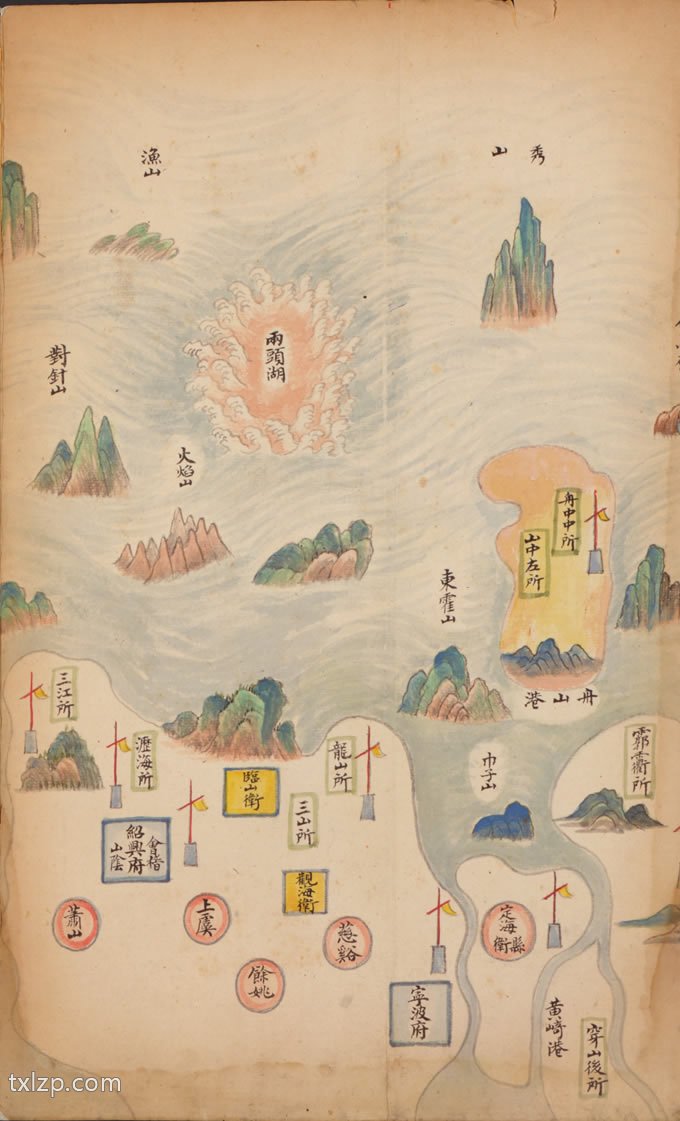 秀山
漁山
兩頭湖
對針山
火焰山
舟中中所
山中左所
東霍山
舟山港
三江所
瀝海所
龍山所
霩𩇕衢所
巾子山
臨山衛
三山所
會稽
紹興府
山陰
觀海衛
蕭山
上虞
慈谿
餘姚
定海縣
衛
寧波府
黃崎港
穿山後所
txlzp.com